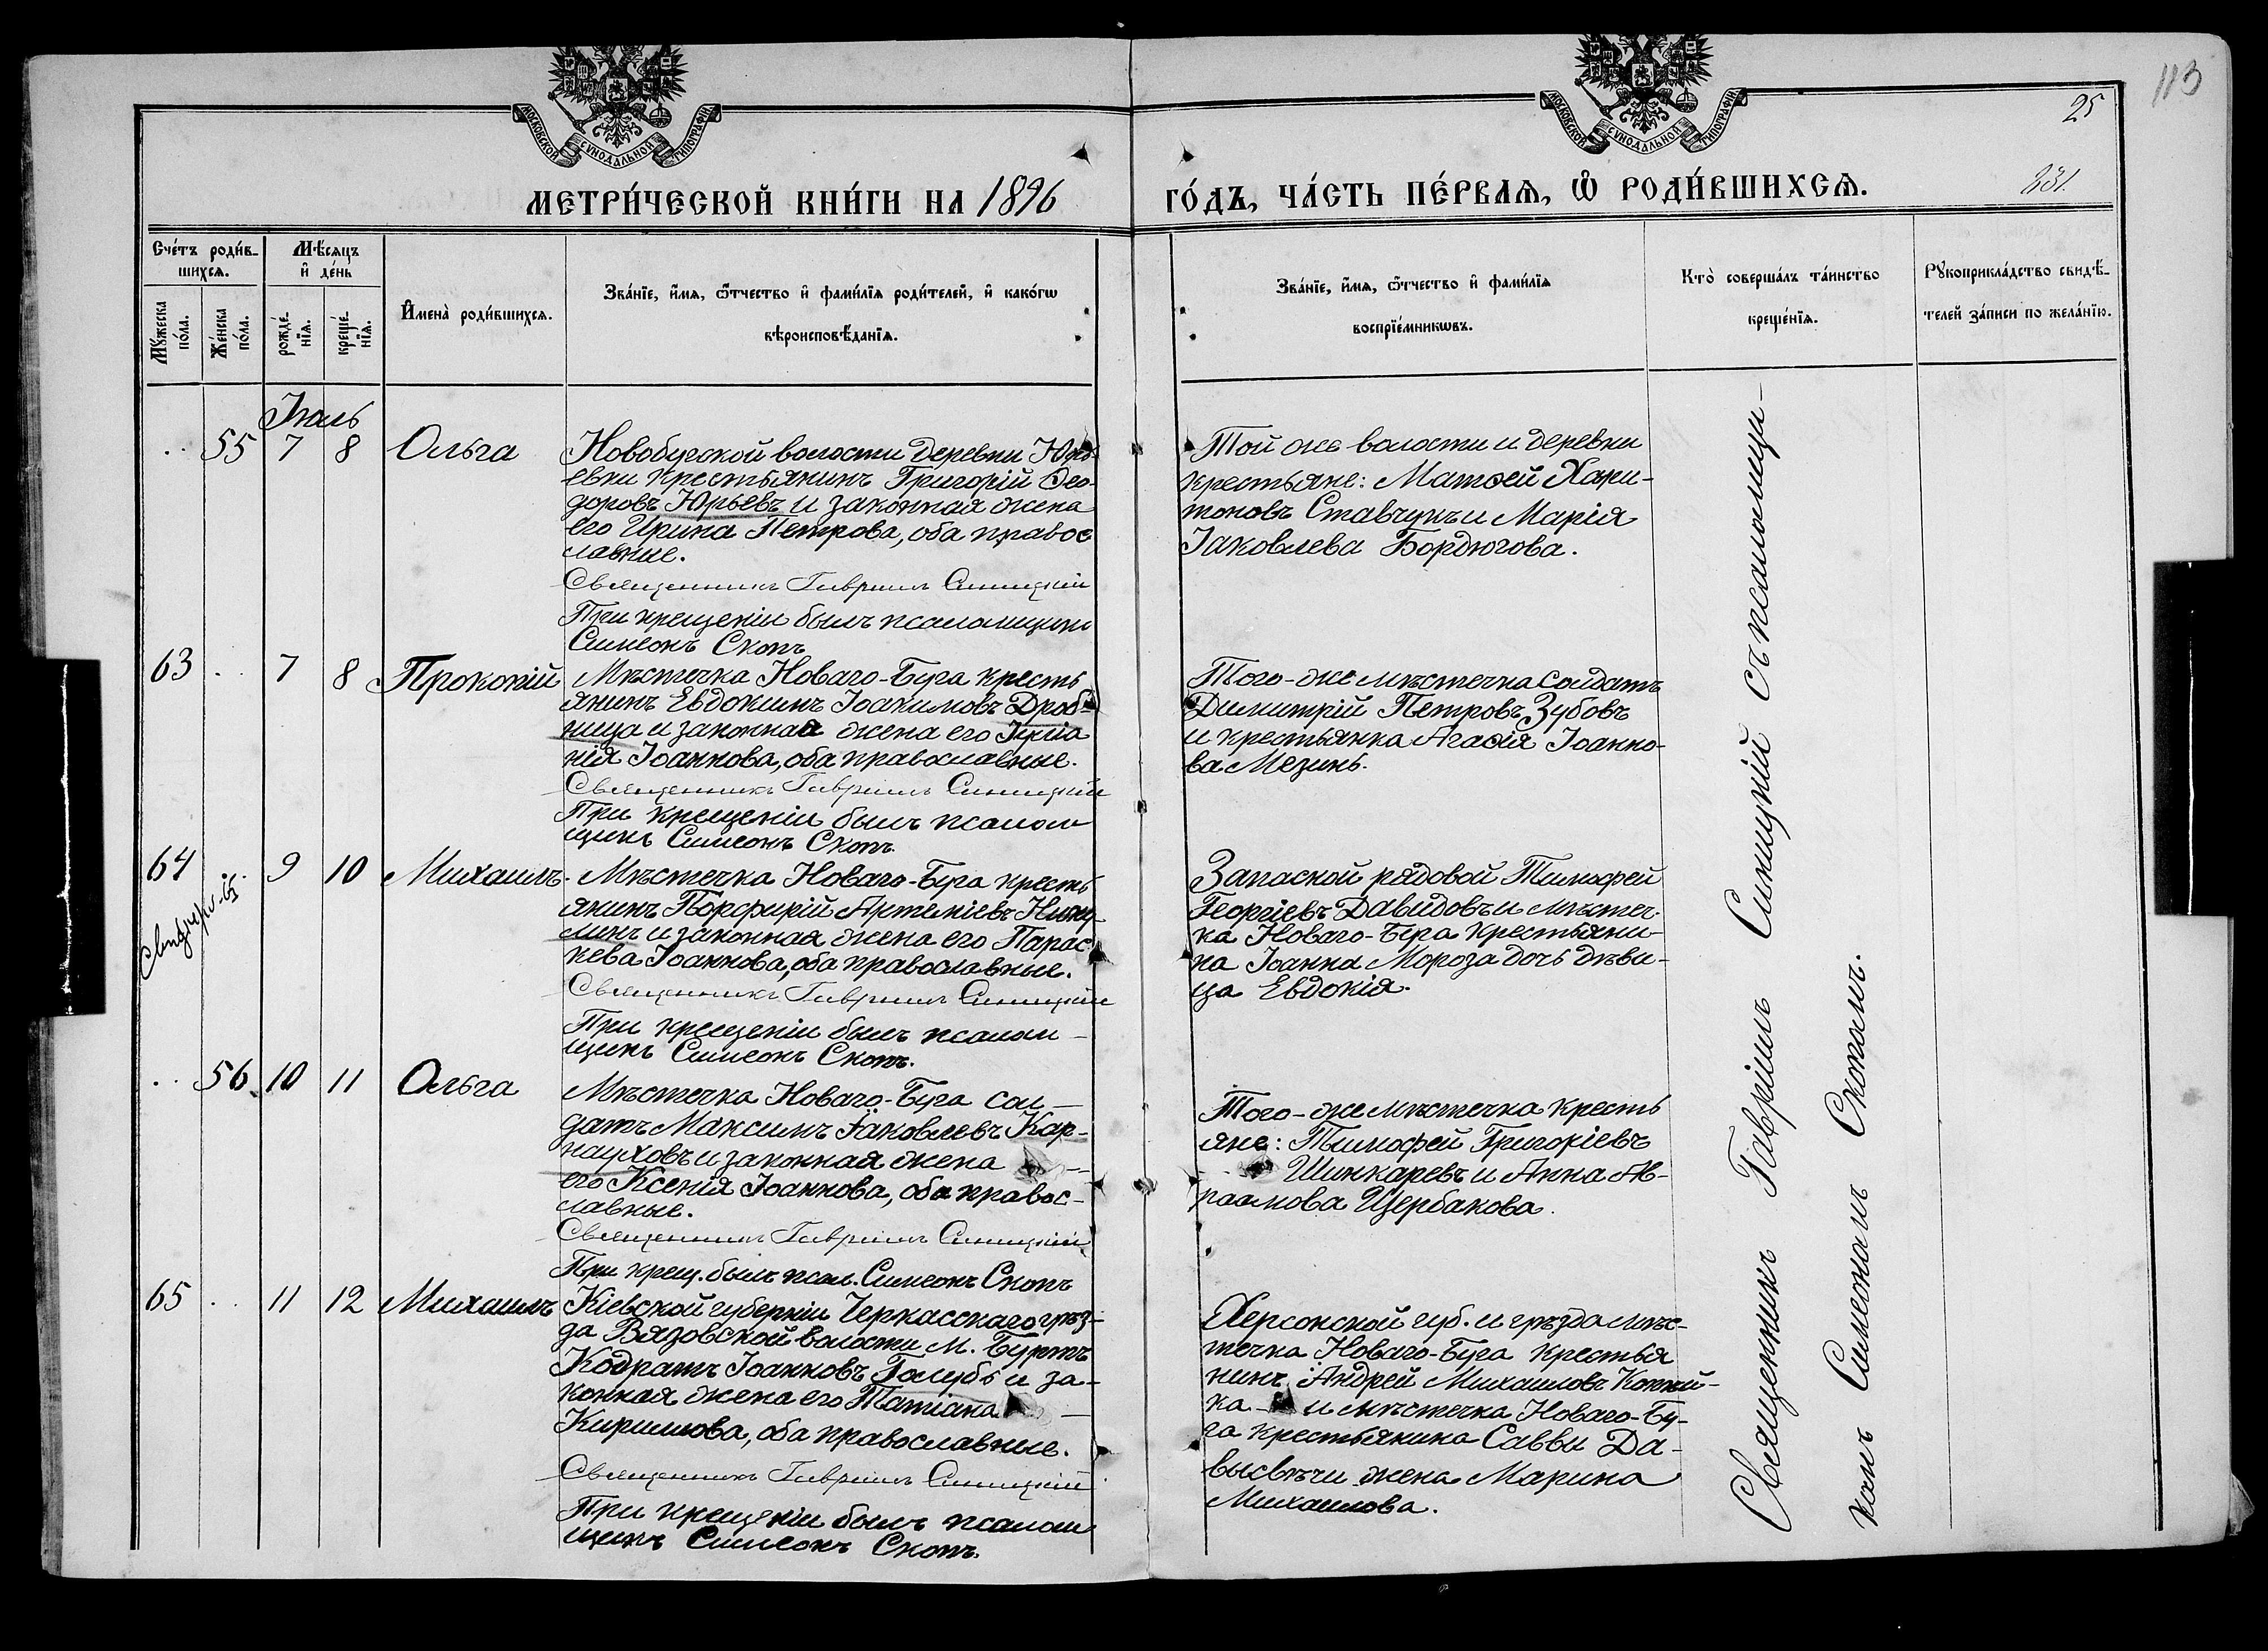 113
25
231.
МОСКОВСКОЙ СѴНОДАЛЬНОЙ ТИПОГРАФІИ
МОСКОВСКОЙ СѴНОДАЛЬНОЙ ТИПОГРАФІИ
МЕТРИ́ЧЕСКОЙ КНИ́ГИ НА 1896
ГО́ДЪ, ЧА́СТЬ ПЕ́РВАѦ, Ѡ РОДИ́ВШИХСѦ.
Сче́тъ роди́в-
шихсѧ.
Мѣ́сѧцъ
и҆ де́нь
Мꙋ́жеска по́ла.
Же́нска по́ла.
рожде́нїѧ.
креще́нїѧ.
И҆мена̀ роди́вшихсѧ.
Зва́нїе, и҆́мѧ, ѻ҆́тчество и҆ фами́лїѧ роди́телей, и҆ како́гѡ
вѣроисповѣ́данїѧ.
Зва́нїе, и҆́мѧ, ѻ҆́тчество и҆ фами́лїѧ
воспрїе́мникѡвъ.
Кто̀ соверша́лъ та́инство
креще́нїѧ.
Рꙋкоприкла́дство свидѣ́-
телей за́писи по жела́нїю.
Іюль
.. 55 7 8 Ольга
Новобугской волости деревни Юрь
евки крестьянинъ Григорій Ѳео-
доровъ Юрьевъ и законная жена
его Ирина Петрова, оба правос
лавные.
Священникъ Гавріилъ Синицкій
При крещеніи былъ псаломщикъ
Симеонъ Скопъ
Той же волости и деревни
крестьяне: Матѳей Хари-
тоновъ Ставчукъ и Марія
Іаковлева Бордюгова.
63 .. 7 8 Прокопій
Мѣстечка Новаго-Буга кресть
янинъ Евдокимъ Іоакимовъ Дроб-
ница и законная жена его Іуліа
нія Іоаннова, оба православные.
Священникъ Гавріилъ Синицкій
При крещеніи былъ псалом
щикъ Симеонъ Скопъ.
Того-же мѣстечка солдатъ
Димитрій Петровъ Зубовъ
и крестьянка Агаѳія Іоанно-
ва Мезинь.
64 .. 9 10 Михаилъ.
Мѣстечка Новаго-Буга кресть
янинъ Порфирій Артеміевъ
и законная жена его Парас
кева Іоаннова, оба православные.
Священникъ Гавріилъ Синицкій
При крещеніи былъ псалом-
щикъ Симеонъ Скопъ.
Запасной рядовой Тимофей
Георгіевъ Давидовъ и мѣстеч-
ка Новаго-Буга крестьяни-
на Іоанна Мороза дочь дѣви-
ца Евдокія.
.. 56. 10 11 Ольга
Мѣстечка Новаго-Буга сол-
датъ Максимъ Іаковлевъ Кар-
науховъ и законная жена
его Ксенія Іоаннова, оба правос-
лавные.
Священникъ Гавріилъ Синицкій
При крещ. былъ псал. Симеонъ Скопъ
Того-же мѣстечка кресть
яне: Тимофей Григоріевъ
Шинкаревъ и Анна Ав-
раамова Щербакова.
65 .. 11 12 Михаилъ
Кіевской губерніи Черкасскаго уѣз-
да Вязовской волости м. Буртъ
Кодратъ Іоанновъ Голубъ и за-
конная жена его Татіана —
Кириллова, оба православные.
Священникъ Гавріилъ Синицкій
При крещеніи былъ псалом
щикъ Симеонъ Скопъ.
Херсонской губ. и уѣзда мѣс-
течка Новаго-Буга крестья
нинъ Андрей Михаиловъ Коннй-
ка — и мѣстечка Новаго-Бу-
га крестьянина Саввы Да-
высвѣчи жена Марина
Михаилова.
Священникъ Гавріилъ Синицкій съ псаломщи-
комъ Симеономъ Скопомъ.